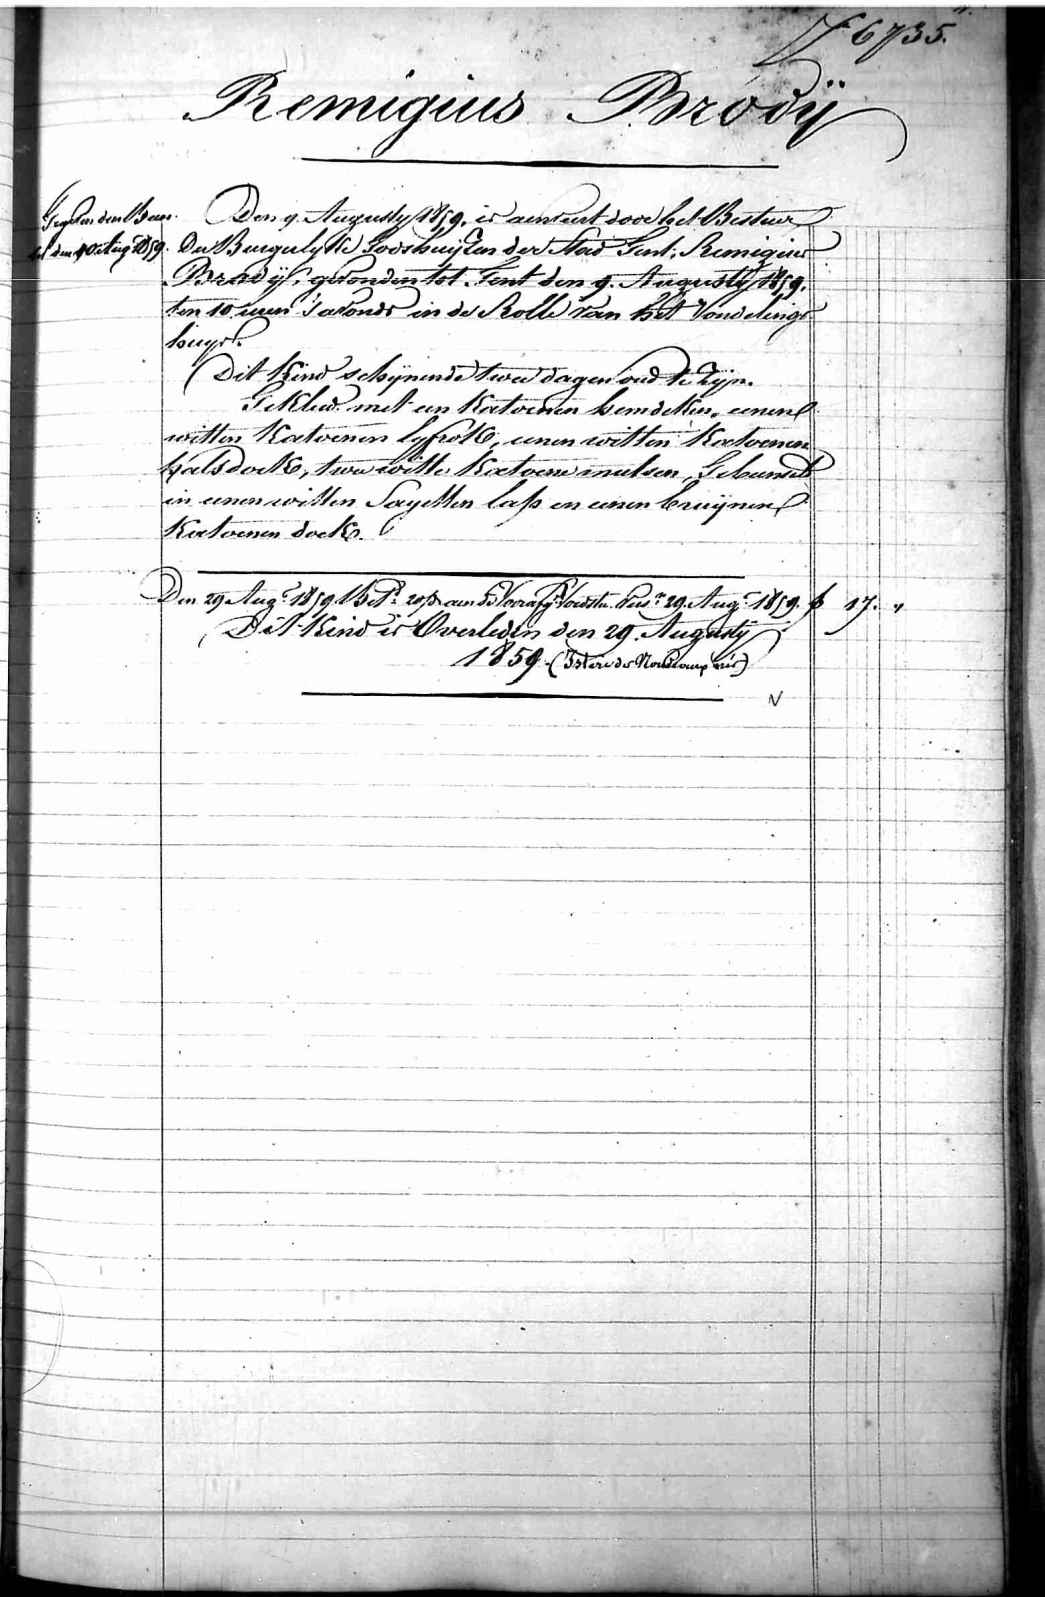 N 6735.
Remigius Brodÿ
den 10 Aug 1859.
Den 9. Augusty 1859. is aenveert door het Bestuer
Der Burgerlyke Godshuyzen der Stad Gent, Remigius
Brodÿ, gevonden tot Gent den 9. Augusty 1859.
ten 10 uren 's avonds in de Rolle van het Vondelings-
huys.
Dit Kind schynende twee dagen oud te zyn.
Gekleed met een Katoenen hemdeken, eenen
witten Katoenen lyfrok, eenen witten Katoenen
halsdoek, twee witte Katoene mutsen, Gebunseld
in eenen witten Sayetten lap en eenen bruynen
Katoenen doek.
Den 29 Aug. 1859. Bet. aen de 29. Aug. 1859. 17. "
Dit Kind is Overleden den 29. Augusty
1859.
N